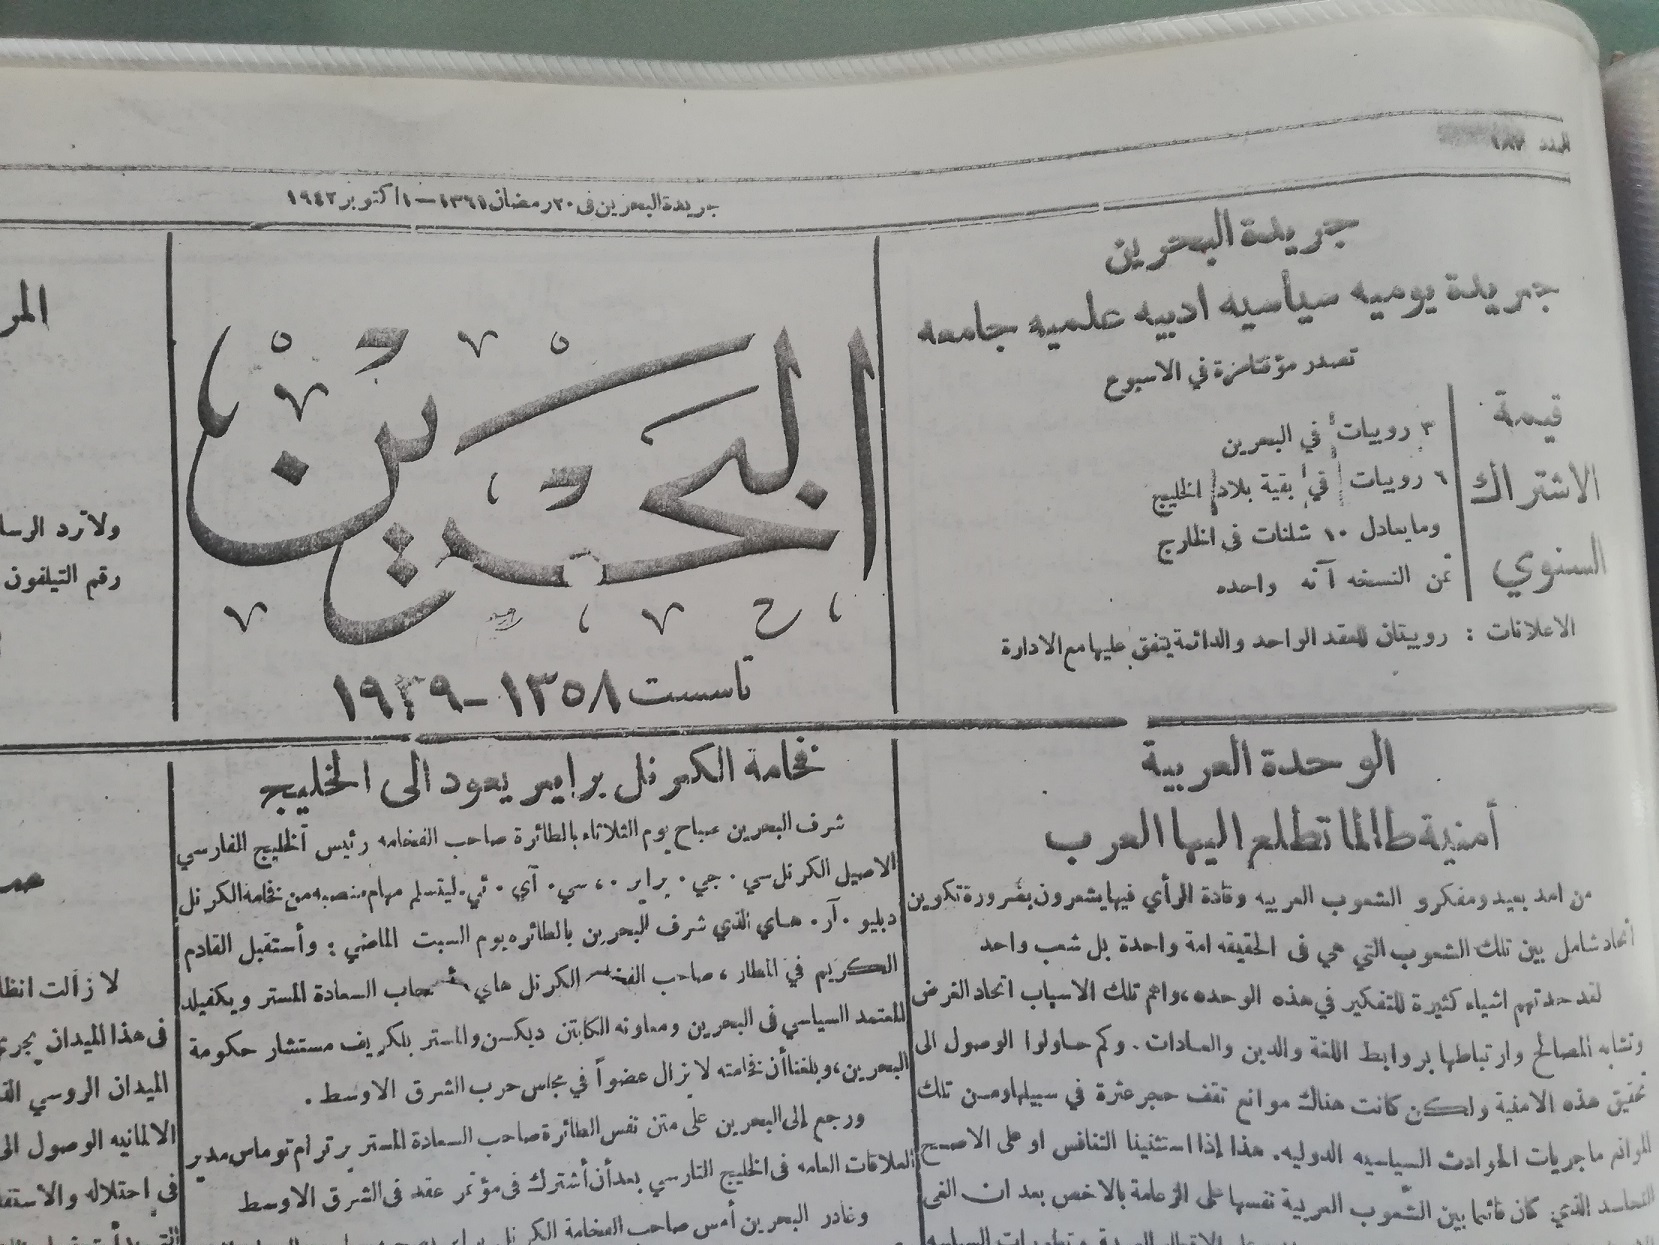 العدد ١٨٧
جريدة البحرين فى ٢٠ رمضان ١٣٦١ – ١ اكتوبر ١٩٤٢
جريدة البحرين
جريدة يوميه سياسيه ادبيه علميه جامعه
تصدر مؤقتا مرة في الاسبوع
قيمة
الاشتراك
السنوي
٣ روبيات في البحرين
٦ روبيات في بقية بلاد الخليج
وما يعادل ١٠ شلنات فى الخارج
ثمن النسخه آنه واحده
الاعلانات : روبيتان للعقد الواحد والدائمة يتفق عليها مع الادارة
البحرين
تاسست ١٣٥٨ – ١٩٣٩
المر
ولا ترد الرسا
رقم التيلفون
الوحدة العربية
أمنية طالما تطلع اليها العرب
من امد بعيد ومفكرو الشعوب العربيه وقادة الرأي فيها يشعرون بضرورة تكوين
اتحاد شامل بين تلك الشعوب التي هي فى الحقيقه امة واحدة بل شعب واحد
لقد حدتهم اشياء كثيرة للتفكير في هذه الوحده، واهم تلك الاسباب اتحاد الغرض
وتشابه المصالح وارتباطها بروابط اللغة والدين والعادات . وكم حاولوا الوصول الى
تحقيق هذه الامنية ولكن كانت هناك موانع تقف حجر عثرة في سبيلها ومن تلك
الموانع ماجريات الحوادث السياسيه الدوليه. هذا إذا استثنينا التنافس او على الاصح
التحاسد الذي كان قائما بين الشعوب العربية نفسها على الزعامة بالاخص بعد ان الغى
فخامة الكرنل براير يعود الى الخليج
شرف البحرين صباح يوم الثلاثاء بالطائرة صاحب الفخامه رئيس الخليج الفارسي
الاصيل الكرنل سي . جي . براير ٠، سي. آي . ئي. ليتسلم مهام منصبه من فخامه الكرنل
دبليو .آر. هاي الذي شرف البحرين بالطائره يوم السبت الماضي : وأستقبل القادم
الكريم في المطار ، صاحب الكرنل هاي السعادة المستر ويكفيلد
المعتمد السياسي فى البحرين ومعاونه الكابتن ديكسن والمستر بلكريف مستشار حكومة
البحرين، وبلغنا أن فخامته لا يزال عضواً في مجلس حرب الشرق الاوسط .
ورجع إلى البحرين على متن نفس الطائرة صاحب السعادة المستر برترام توماس مدير
العلاقات العامه فى الخليج الفارسي بعد أن أشترك فى مؤتمر عقد فى الشرق الاوسط
وغادر البحرين أمس صاحب الفخامة الكرنل
لا زالت انظا
فى هذا الميدان يجرى
الميدان الروسي
الالمانيه الوصول الى
فى احتلاله والاستفا